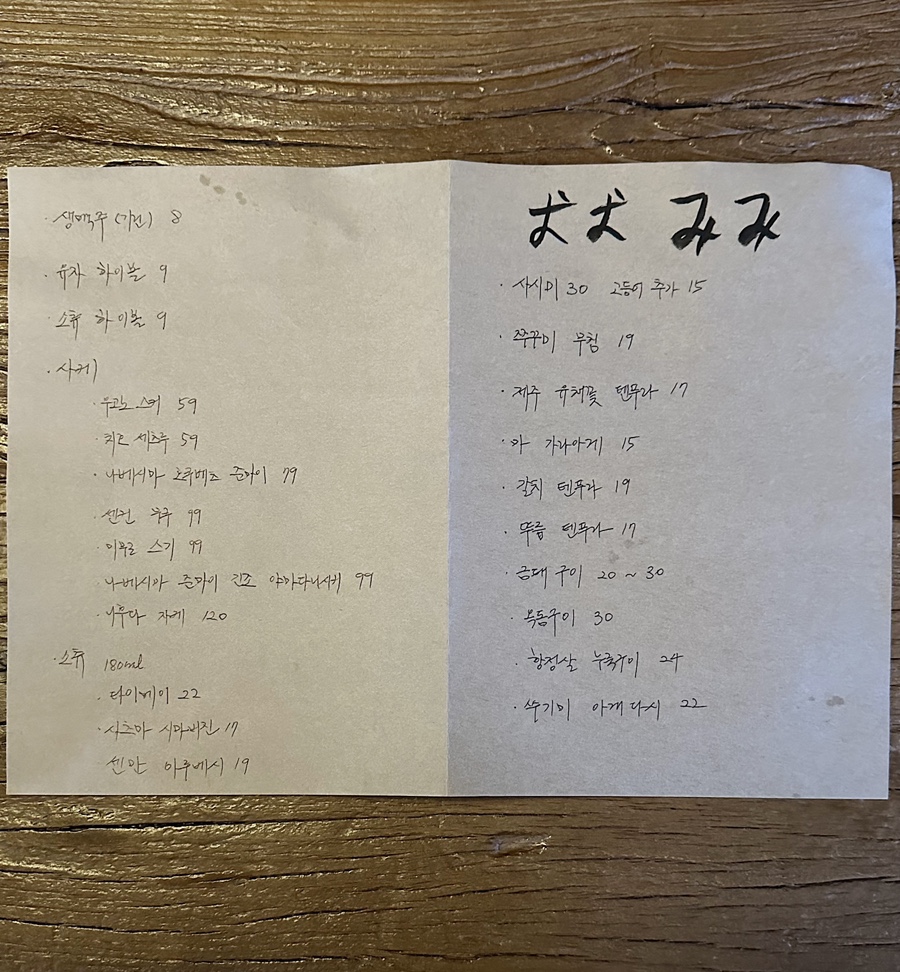 · 생맥주 (기린) 8
· 유자 하이볼 9
· 소츄 하이볼 9
· 사케
· 스키 59
· 지르 세츠추 59
· 나베시마 토쿠베츠 준마이 79
· 센킨 99
· 이무로 스기 99
· 나베시마 준마이 긴죠 야마다니시키 99
· 니후다 자케 120
· 소츄 180ml
· 타이메이 22
· 사츠마 시마비진 17
센안 아쿠베시 19
犬犬 みみ
· 사시미 30 고등어 추가 15
· 쭈꾸미 무침 19
· 제주 유채꽃 텐푸라 17
· 마 가라아게 15
· 갈치 텐푸라 19
· 뚜릅 텐푸라 17
· 금태 구이 20 ~ 30
· 옥돔구이 30
· 항정살 누룩구이 24
· 쑤기미 아게다시 22